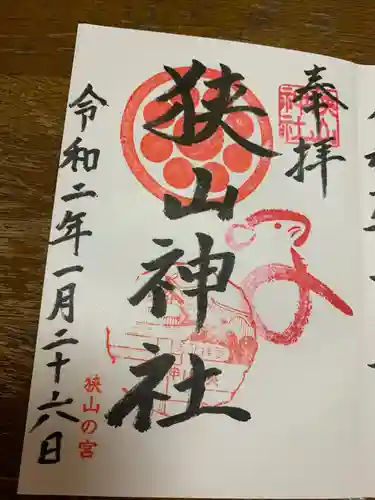 奉拝
狭山神社
令和二年一月二十六日
狭山の宮